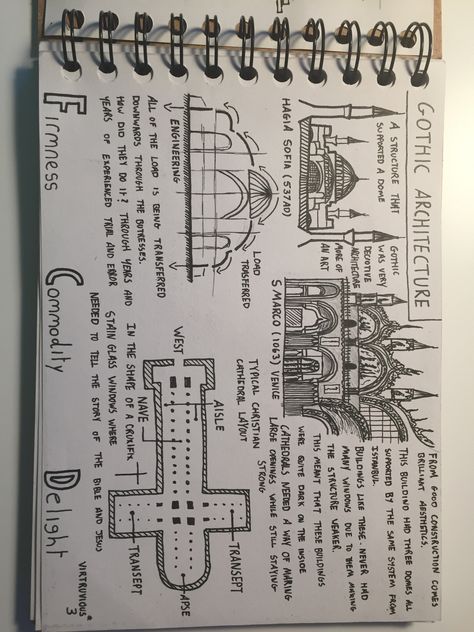 GOTHIC ARCHITECTURE
A STRUCTURE THAT
SUPPORTED A DOME
GOTHIC
WAS VERY
DECOTIVE
ARCHITECTURE
MORE OF
AN ART
HAGIA SOFIA (537AD)
S MARCO (1063) VENICE
FROM GOOD CONSTRUCTION COMES
BRILLIANT AESTHETICS.
THIS BUILDING HAD THREE DOMES ALL
SUPPORTED BY THE SAME SYSTEM FROM
ISTANBUL
BUILDINGS LIKE THESE NEVER HAD
MANY WINDOWS DUE TO THEM MAKING
THE STRUCTURE WEAKER.
THIS MEANT THAT THESE BUILDINGS
WERE QUITE DARK ON THE INSIDE
CATHEDRALS NEEDED A WAY OF MAKING
LARGE OPENINGS WHILE STILL STAYING
STRONG
LOAD
TRASFERRED
ENGINEERING
TYPICAL CHRISTIAN
CATHEDRAL LAYOUT
WEST
AISLE
NAVE
TRANSEPT
APSE
TRANSEPT
ALL OF THE LOAD IS BEING TRANSFERRED
DOWNWARDS THROUGH THE BUTRESSES.
HOW DID THEY DO IT? THROUGH YEARS AND
YEARS OF EXPERIENCED TRIAL AND ERROR
IN THE SHAPE OF A CRUXIFIX
STAIN GLASS WINDOWS WHERE
NEEDED TO TELL THE STORY OF THE BIBLE AND JESU
Firmness Commodity Delight
VIRTRUVIOUS
3